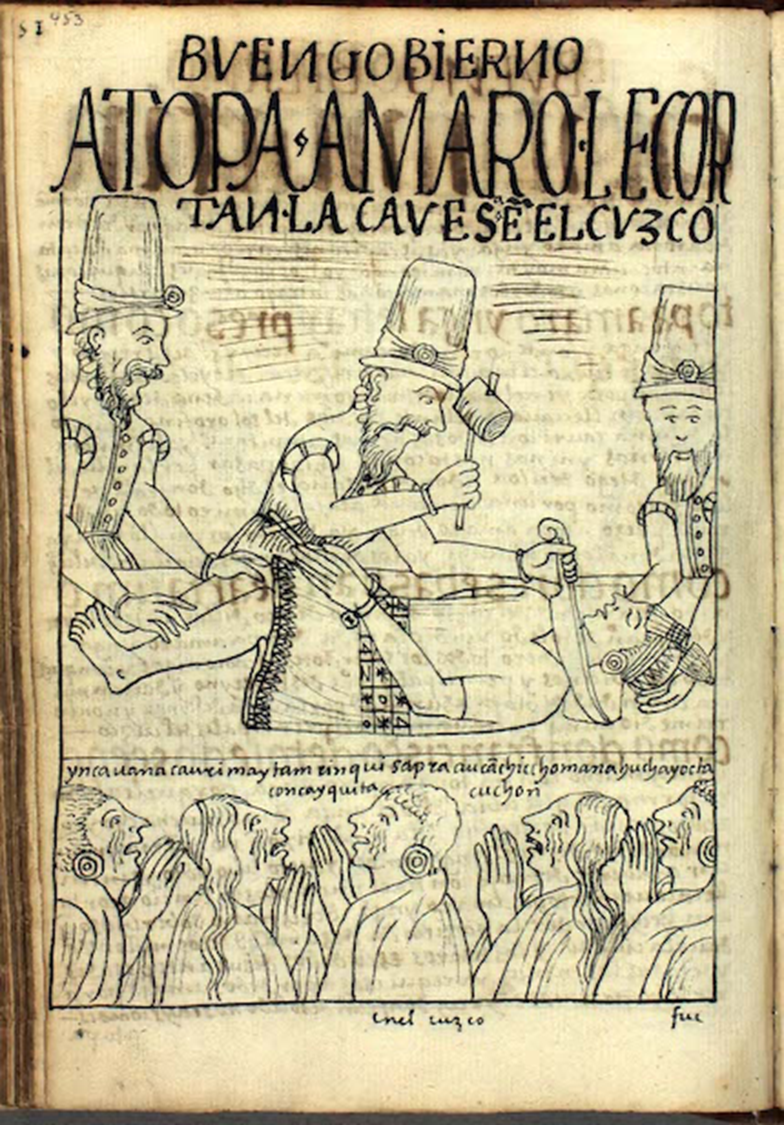 51 453
BVEN GOBiERNO
ATOPA AMARO·LE COR
TAN·LA CAVESẼ EL CVZCO
ynca uana cauri maytam rinqui sapra aucãchiccho mana huchayocta
concayquita cuchon
enel cuzco
fue